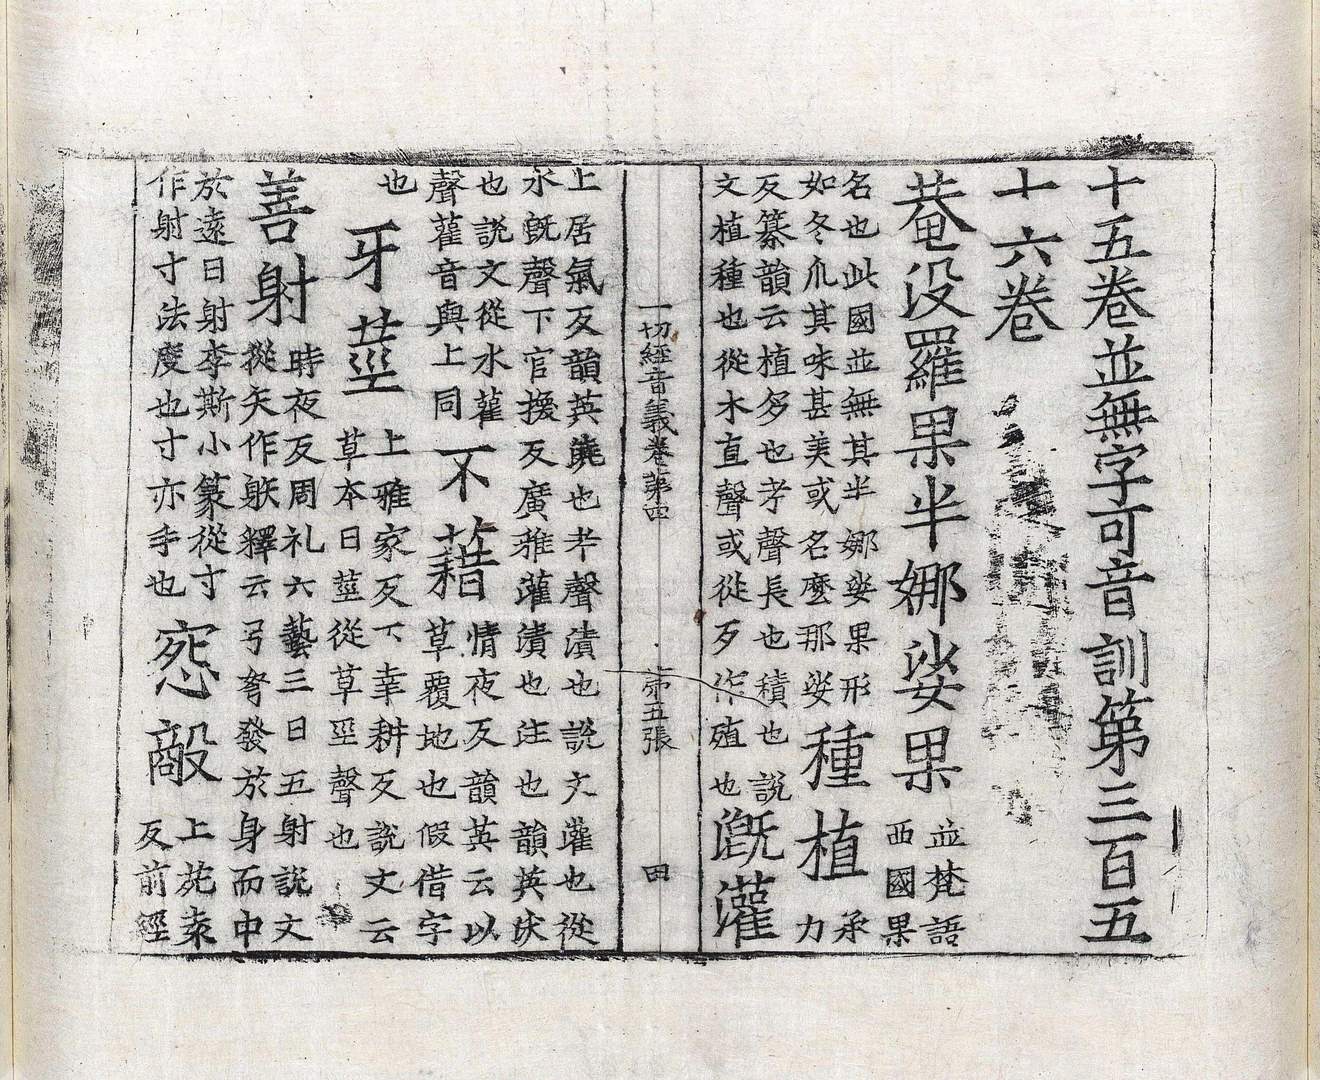 十五巻並無字可音訓第三百五
十六巻
菴没羅果半娜娑果並梵語西國果
名也此國並無其半娜娑果形如冬瓜其味甚美或名麼那娑種植承力
反纂韻云植多也考聲長也積也說文植種也從木直聲或從歹作殖也漑灌
一切經音義卷第四 第五張 田
上居氣反韻英澆也考聲漬也說文灌也從水旣聲下官換反廣雅灌漬也注也韻英沃
也說文從水雚聲雚音與上同不藉情夜反韻英云以草覆地也假借字
也牙莖上雅家反下幸耕反說文云草本曰莖從草巠聲也
善射時夜反周礼六藝三曰五射說文從矢作䠶釋云弓弩發於身而中
於遠曰射李斯小篆從寸作射寸法度也寸亦手也怨敵上菀袁反前經